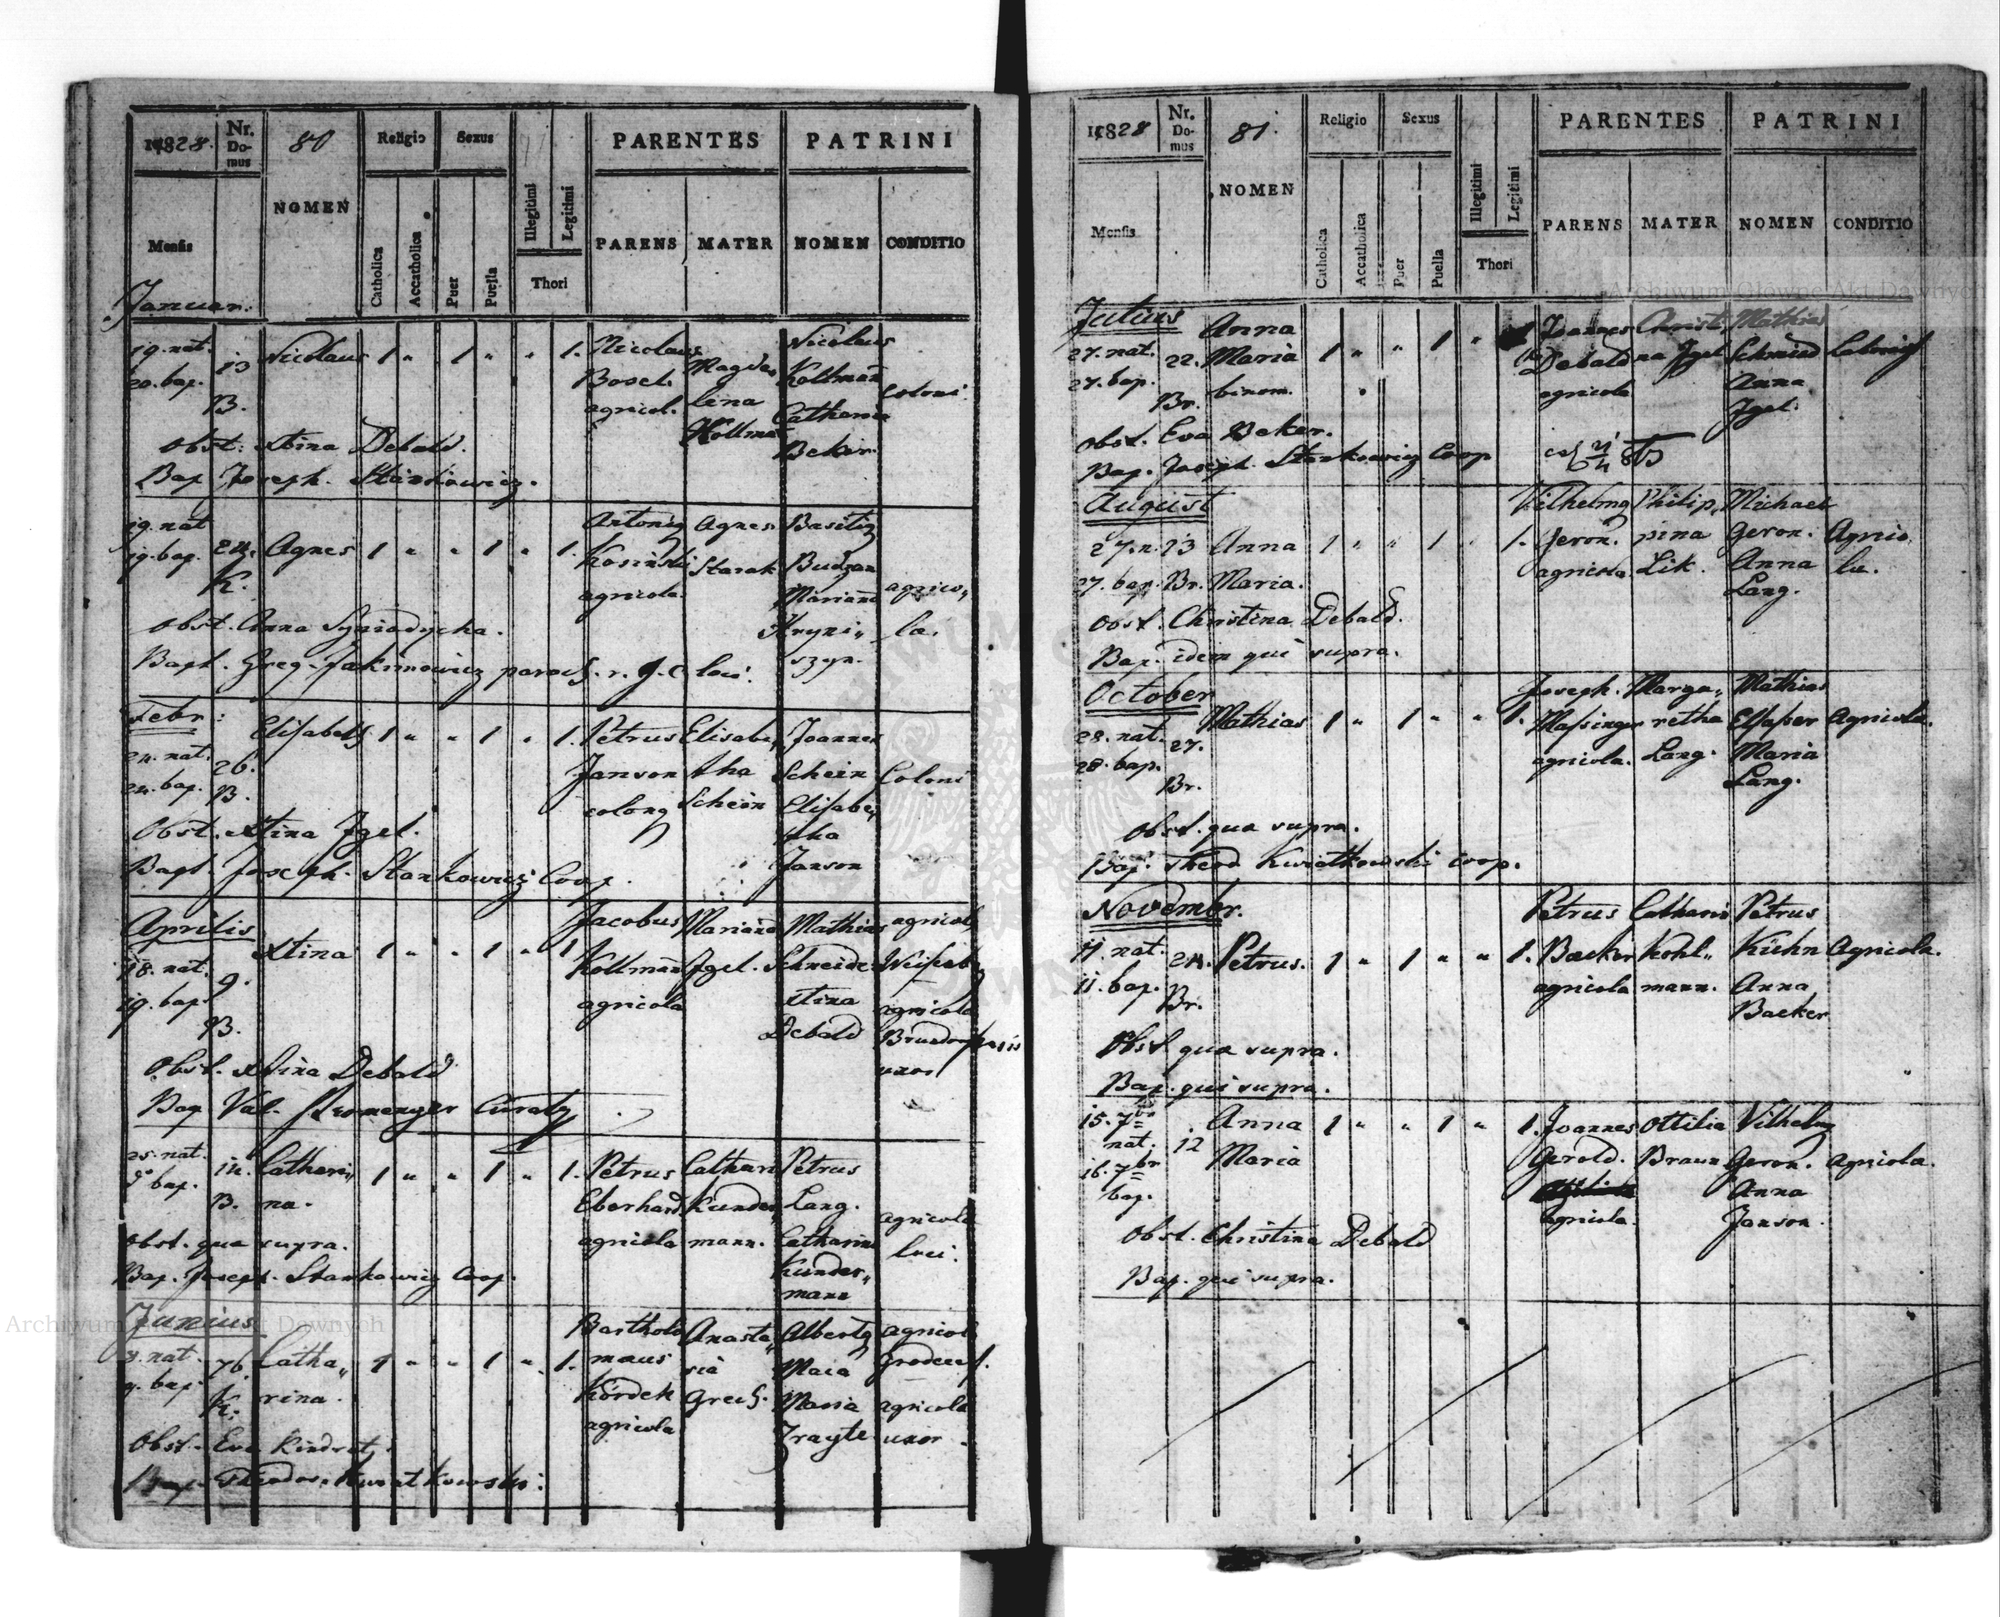 1828.
Nr. Domus
80
Religio
Sexus
PARENTES
PATRINI
Mensis
NOMEN
Catholica
Accatholica
Puer
Puella
Illegitimi
Legitimi
Thori
PARENS
MATER
NOMEN
CONDITIO
Januar.
19. nat. 13 Nicolaus 1 " 1 " " 1. Nicolaus Magda Nicolaus
20. bap. B. Bosel. lina Kollmañ Coloni
agricol. Kollmañ Catharina
Beker.
Obst: Xtina Debald.
Bap. Joseph. Stankowicz.
19. nat 24. Agnes 1 " " 1 " 1. Antonig Agnes Basilig
19. bap. K. Kosinski Starak Budzan
agricola. Marianna agrico„
Hryni„ la.
szyn.
Obst. Anna Syniadycha.
Bapt. Greg. Jakimowicz paroch. r. g. c. loci.
Febr:
24. nat. 26. Elisabeth 1 " " 1 " 1. Petrus Elisabe„ Joannes
24. bap. B. Janson tha Schein Coloni
colong Schein Elisabe„
tha
Janson
Obst. Xtina Igel.
Bapt. Joseph. Stankowicz Coop.
Aprilis
18. nat. 9. Xtina 1 " " 1 " 1. Jacobus Mariana Mathias agricola
19. bap. B. Kollmañ Igel. Schneider
agricola Xtina agricola
Debald
uxor
Obst. Xtina Debald
Bap. Val. Curatg
25. nat. 14. Catheri„ 1 " " 1 " 1. Petrus Cathari Petrus
d° bap. B. na. Eberhard Kunder„ Lang. agricola
agricola mann. Catharina loci.
Kunder„
mann
Obst. qua supra.
Bap. Joseph. Stankowicz Coop.
Junius
3. nat. 76. Catha„ 1 " " 1 " 1. Bartholo Anasta„ Albertg agricola
4. bap. K. rina. maus sia Maia
Kordek Grech. Maria agricola
agricola uxor.
Obst. Eva
Bap. Theodor. Kwiatkowski.
1828
Nr. Domus
81.
Religio
Sexus
PARENTES
PATRINI
Mensis
NOMEN
Catholica
Accatholica
Puer
Puella
Illegitimi
Legitimi
Thori
PARENS
MATER
NOMEN
CONDITIO
Julius
27. nat. 22. Anna Maria 1 " " 1 " Joannes Christi„ Mathias
27. bap. Br. binom. Debald na Igel Schmied
agricola Anna
Igel.
Obst. Eva Beker.
Bap. Joseph. Stankowicz Coop
August
27. n. 23 Anna 1 " " 1 " 1. Vilhelmg Philip„ Michael
27. bap. Br. Maria. Geron. pina Geron. Agrico
agricola Lik. Anna lae.
Lang.
Obst. Christina Debald.
Bap. idem qui supra.
October
28. nat. 27. Mathias 1 " 1 " " 1. Joseph. Marga„ Mathias
28. bap. Br. Massinger retha Agricola.
agricola. Lang. Maria
Lang.
Obst. qua supra.
Bap. Theod Kwiatkowski coop.
Novembr.
11. nat. 24. Petrus. 1 " 1 " " 1. Petrus Catharin Petrus
11. bap. Br. Baeker Kohl„ Kühn Agricola.
agricola mann. Anna
Baeker
Obst. qua supra.
Bap. qui supra.
15. 7br nat. 12 Anna 1 " " 1 " 1. Joannes Ottilia Vilhelmg
16. 7br bap. Maria Gerold. Braun Geron. Agricola.
agricola. Anna
Janson.
Obst. Christina Debald
Bap. qui supra.
Archiwum Główne Akt Dawnych
Archiwum Główne Akt Dawnych